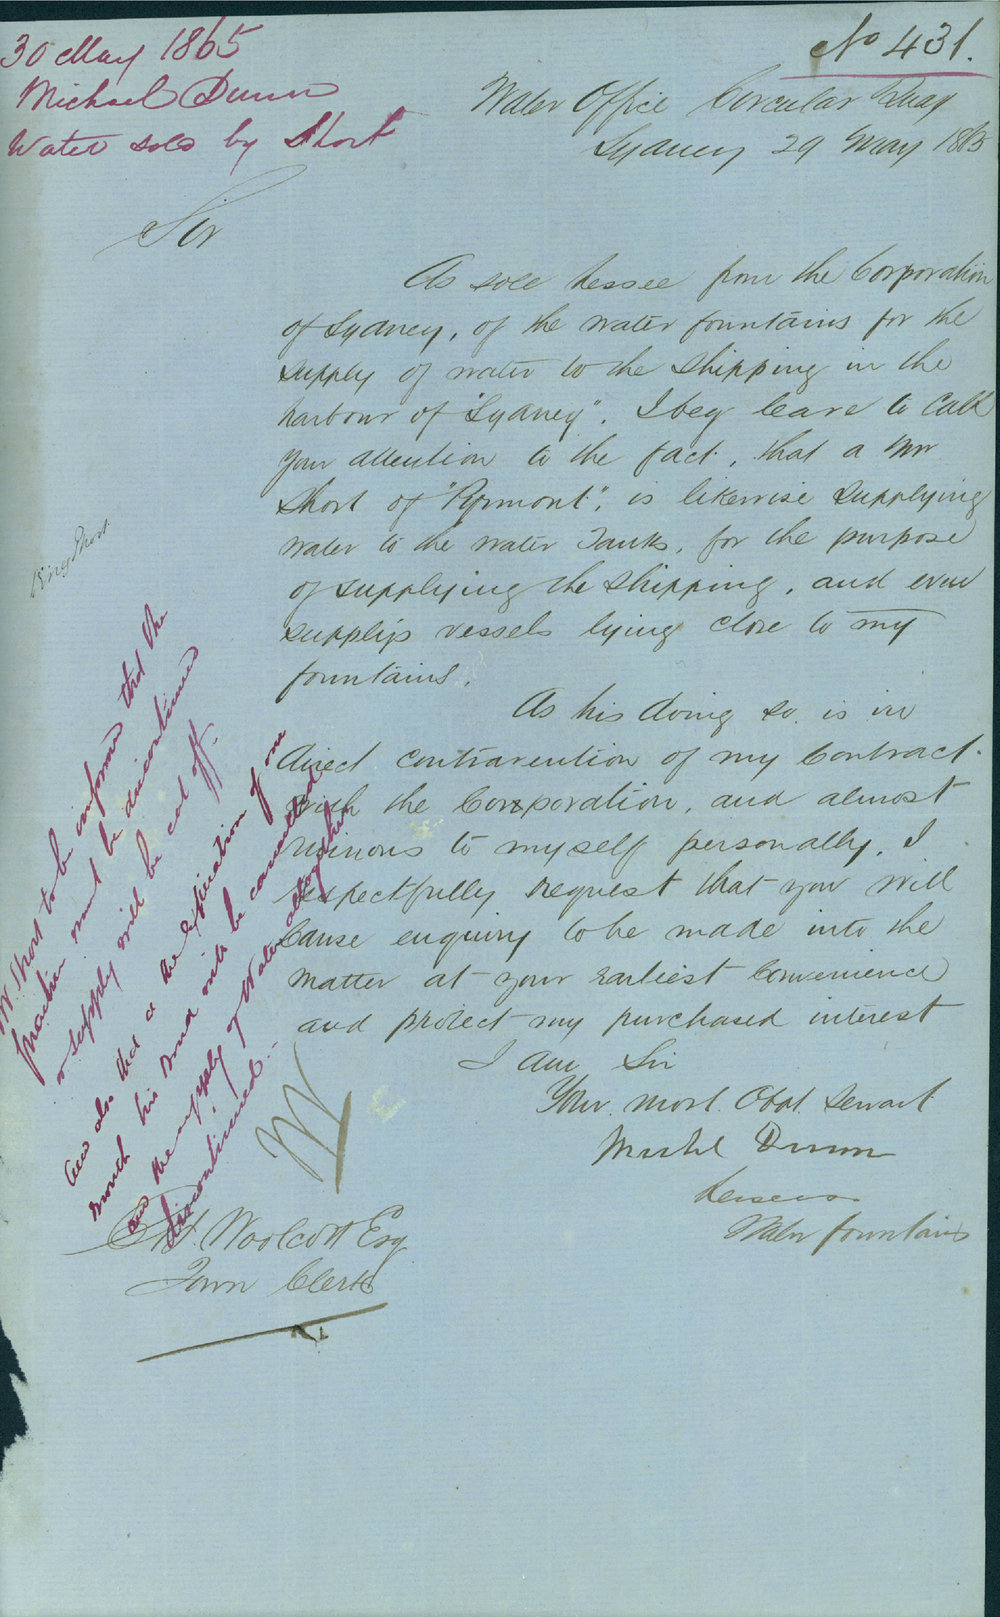 30 May 1865
Michael Dunn
Water sold by Short
No 431.
Water Office Circular Quay
Sydney 29 May 1865
Sir
As sole Lessee from the Corporation
of Sydney, of the water fountains for the
supply of water to the shipping in the
harbour of "Sydney". I beg leave to call
your attention to the fact, that a Mr
Short of "Pyrmont", is likewise supplying
water to the water Tanks, for the purpose
of supplying the shipping, and even
supplys vessels lying close to my
fountains.
As his doing so is in
direct contravention of my Contract
with the Corporation, and almost
ruinous to myself personally, I
respectfully request that you will
cause enquiry to be made into the
matter at your earliest convenience
and protect my purchased interest
I am Sir
Your most Obdt Servant
Michl Dunn
Lessee
Water fountains
Mr Short to be informed that the
practice must be discontinued
or supply will be cut off.
and also that at the expiration of one
month his bond will be cancelled
and the supply of Water altogether
discontinued.
C H Woolcott Esq
Town Clerk